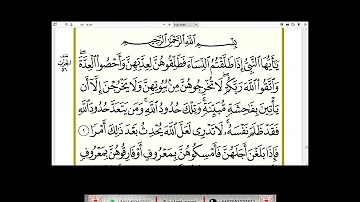 بِسْمِ ٱللَّهِ ٱلرَّحْمَٰنِ ٱلرَّحِيمِ
يَٰٓأَيُّهَا ٱلنَّبِىُّ إِذَا طَلَّقْتُمُ ٱلنِّسَآءَ فَطَلِّقُوهُنَّ لِعِدَّتِهِنَّ وَأَحْصُوا۟ ٱلْعِدَّةَ
وَٱتَّقُوا۟ ٱللَّهَ رَبَّكُمْ لَا تُخْرِجُوهُنَّ مِنۢ بُيُوتِهِنَّ وَلَا يَخْرُجْنَ إِلَّآ أَن
يَأْتِينَ بِفَٰحِشَةٍ مُّبَيِّنَةٍ وَتِلْكَ حُدُودُ ٱللَّهِ وَمَن يَتَعَدَّ حُدُودَ ٱللَّهِ
فَقَدْ ظَلَمَ نَفْسَهُۥ لَا تَدْرِى لَعَلَّ ٱللَّهَ يُحْدِثُ بَعْدَ ذَٰلِكَ أَمْرًا ١
فَإِذَا بَلَغْنَ أَجَلَهُنَّ فَأَمْسِكُوهُنَّ بِمَعْرُوفٍ أَوْ فَارِقُوهُنَّ بِمَعْرُوفٍ